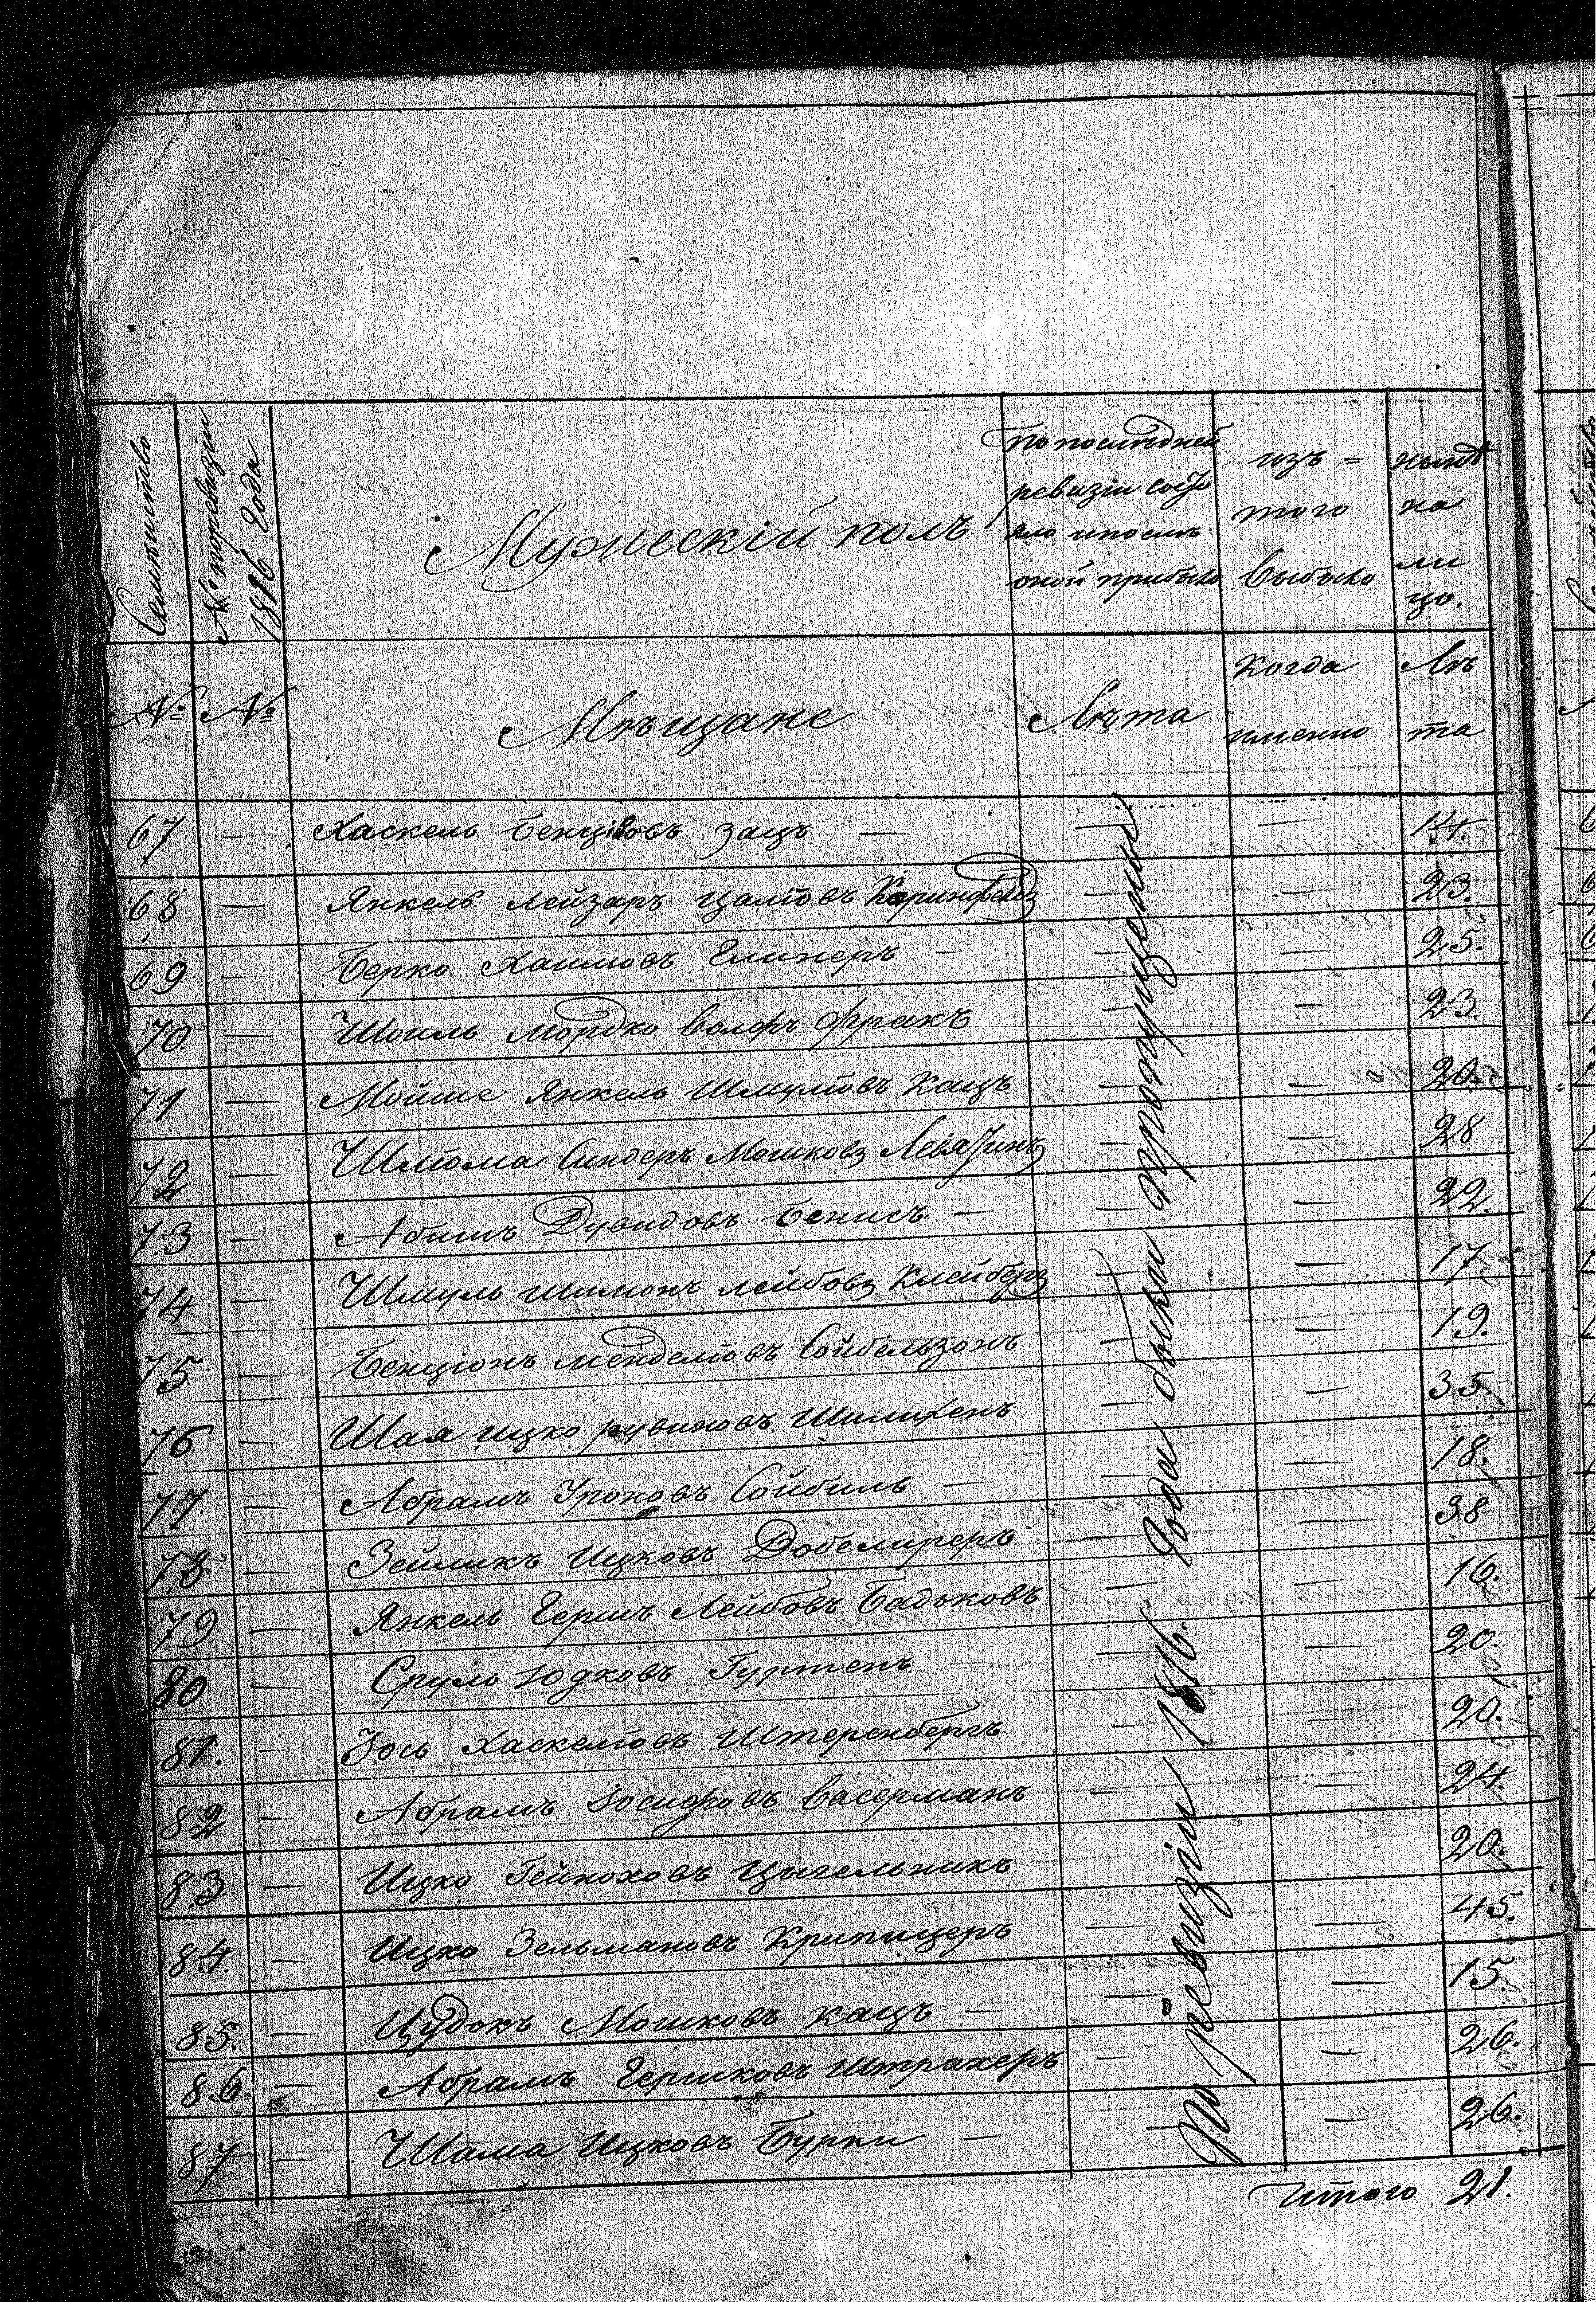 Семейство
№ по ревизіи
1816 года
Мужескій полъ
По последней
ревизіи состо
яло и после
оной прибыло
изъ =
того
выбыло
ныне
на
ли
цо.
№
№
Мѣщане
Лѣта
Когда
именно
Лѣ
та
67 — Хаскель Бенціовъ Зацъ — — — 14.
68 — Янкель Лейзаръ Цалiовъ — — 23.
69 — Берко Хаимовъ Глинеръ — — — 25.
70. — Шоиль Мордко Волфъ Фракъ — — 23.
71 — Мойше Янкель Шмулiовъ Кацъ — — 20.
72 — Шлiома Синдеръ Мошковъ — — 28
73 — Абишъ Дувидовъ Бенисъ — — — 22.
74 — Шмуль Шимонъ Лейбовъ Клейберъ — — 17
75. — Бенціонъ Менделiовъ Сойбельзонъ — — 19.
76 — Шая Ицко Рувиновъ — — 35.
77. — Абрамъ Сройовъ Сойбиль — — — 18.
78 — Зейликъ Ицковъ — — 38
79 — Янкель Гершъ Лейбовъ Бадьковъ — — 16.
80 — Сруль Юдковъ Гуртенъ — — — 20.
81. — Зось Хаскелiовъ Штеренбергъ — — 20.
82 — Абрамъ Іосифовъ Васерманъ — — 24.
83 — Ицко Гейноховъ Цыгельникъ — — 20.
84. — Ицко Зельмановъ Крипицеръ — — 45.
85. — Цудокъ Мошковъ Кацъ — — — 15.
86. — Абрамъ Гершковъ Штрахеръ — — 26.
87 — Шама Ицковъ Бурки — — — 26.
По ревизіи 1816. Года были пропущены
Итого 21.